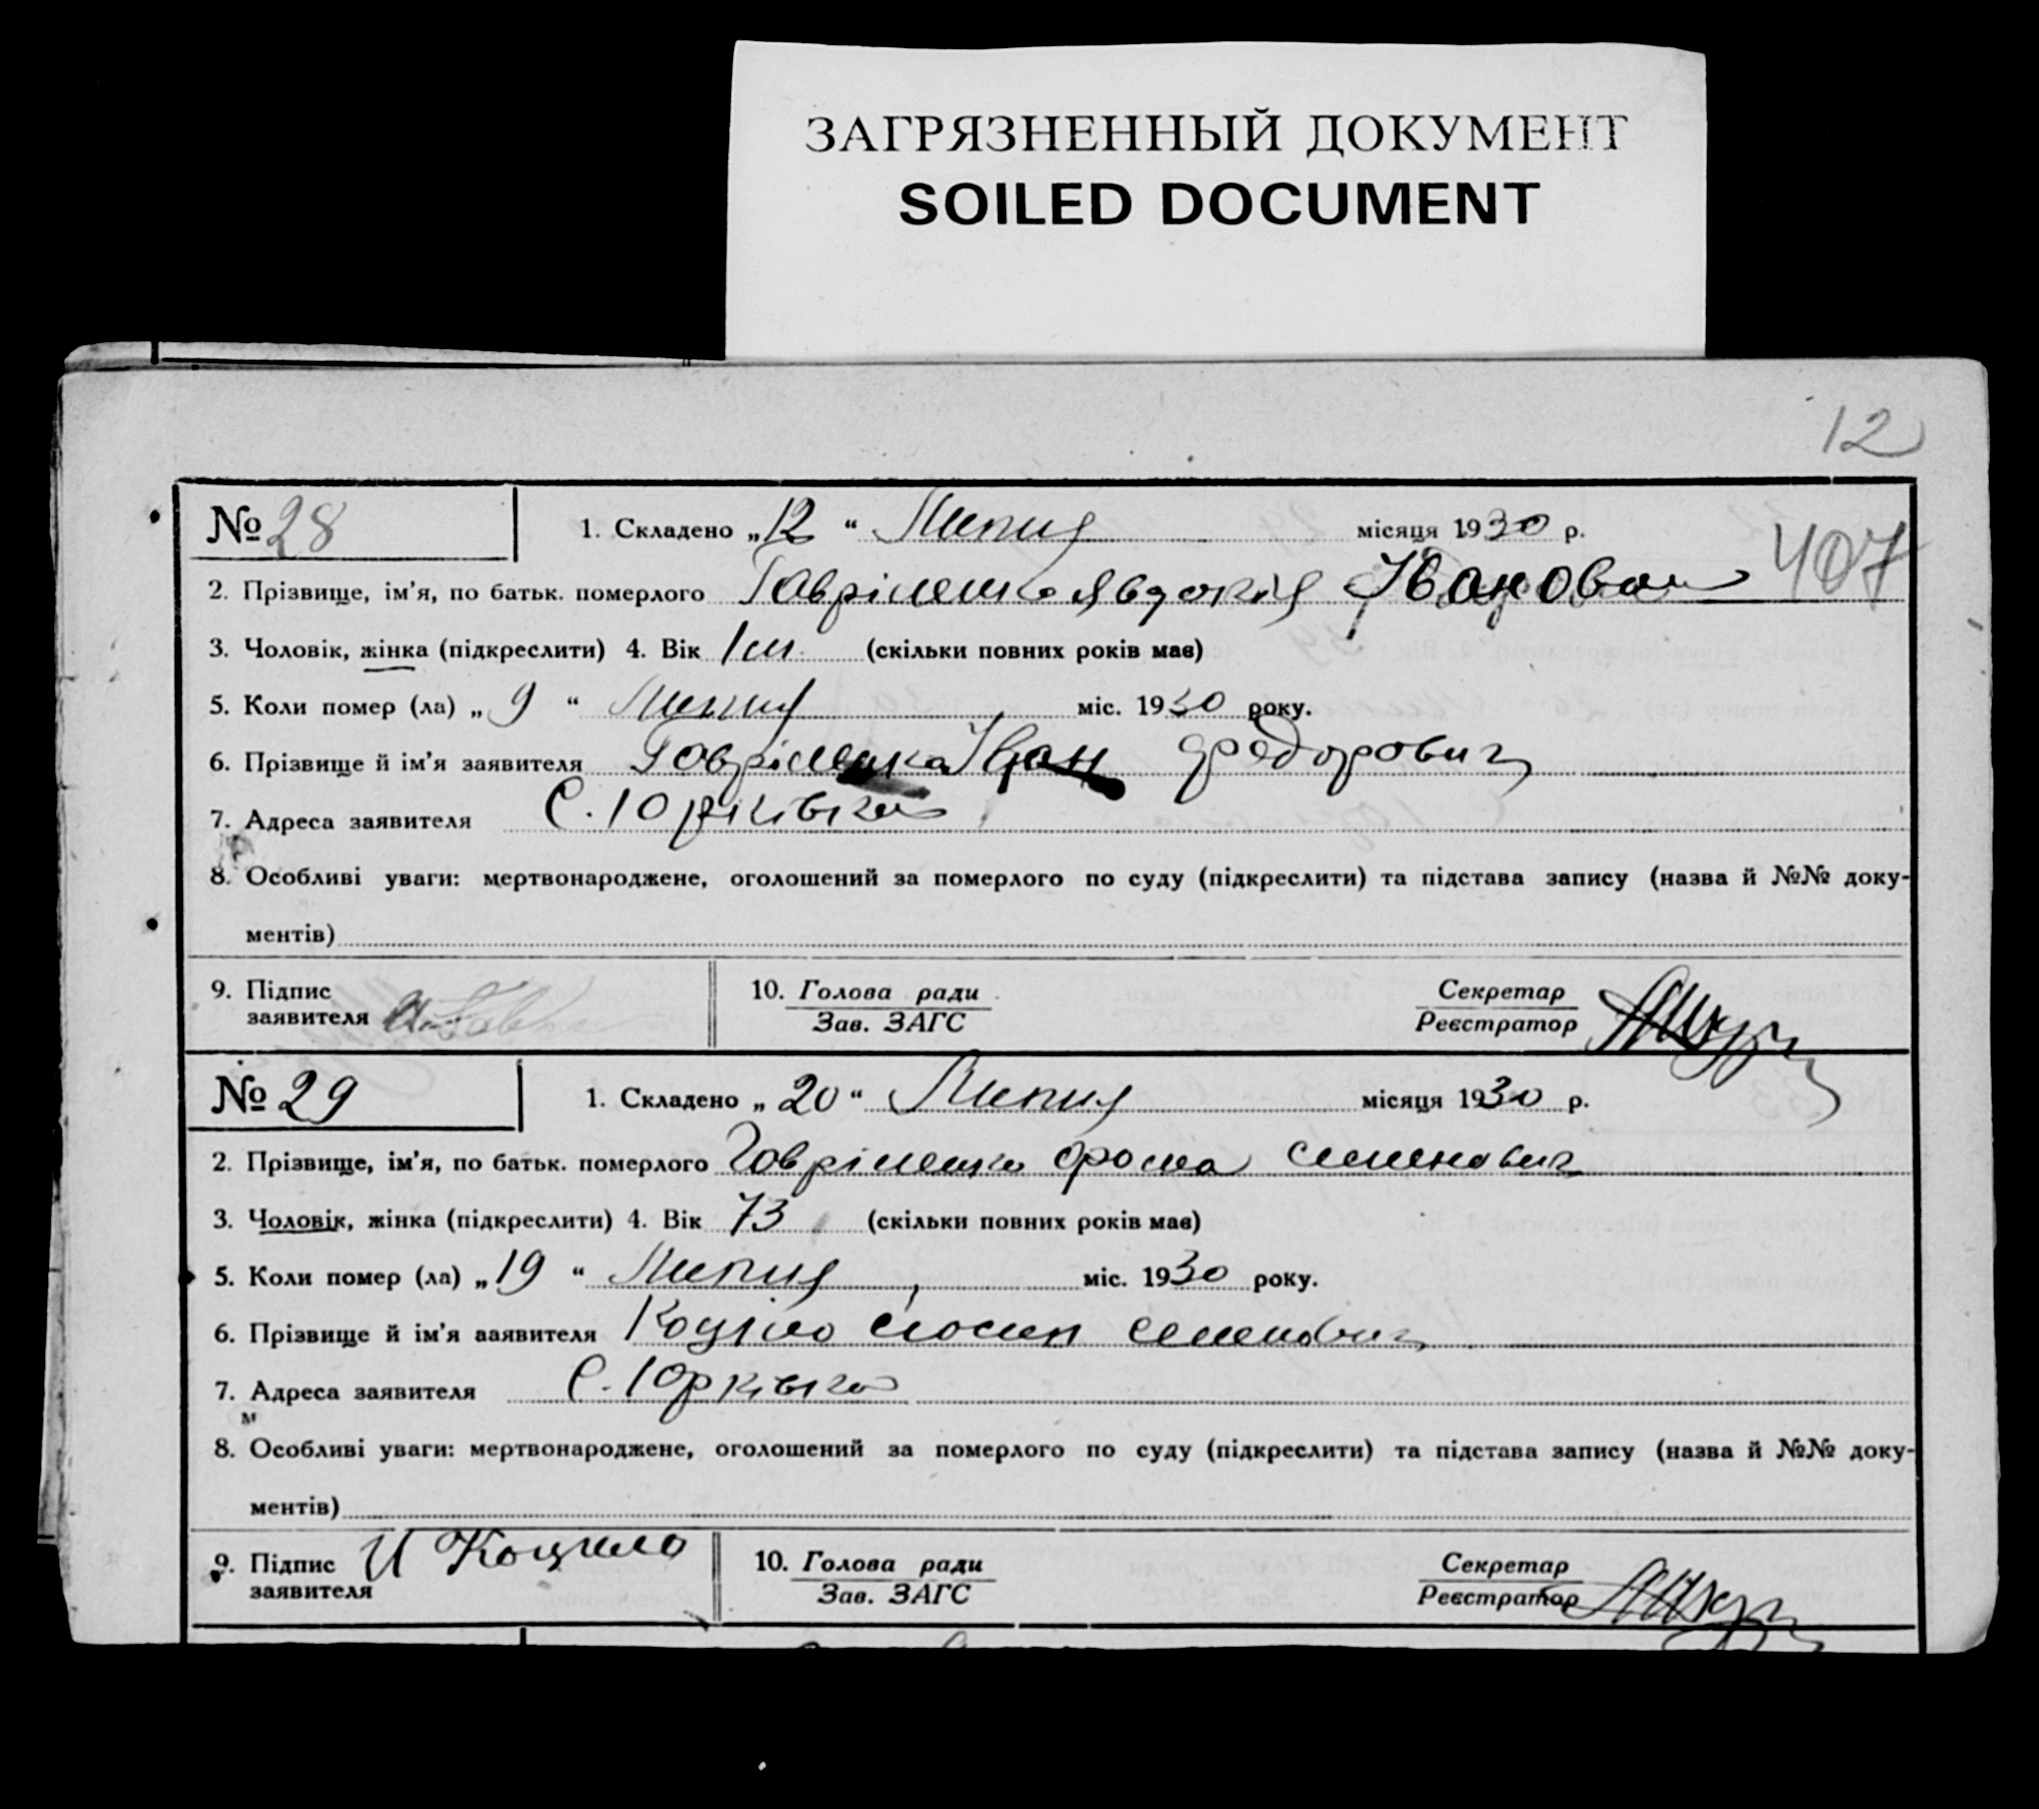 ЗАГРЯЗНЕННЫЙ ДОКУМЕНТ
SOILED DOCUMENT
12
№ 28 1. Складено „12“ Липня місяця 1930 р.
407
2. Прізвище, ім'я, по батьк. померлого Гаврілешко Явдокія Іванова
3. Чоловік, жінка (підкреслити) 4. Вік 1 м. (скільки повних років має)
5. Коли помер (ла) „9“ Липня міс. 1930 року.
6. Прізвище й ім'я заявителя Гаврілешка Іван Федорович
7. Адреса заявителя С. Юрківка
8. Особливі уваги: мертвонароджене, оголошений за померлого по суду (підкреслити) та підстава запису (назва й №№ доку-
ментів)
9. Підпис заявителя 10. Голова ради Зав. ЗАГС Секретар Реєстратор
№ 29 1. Складено „20“ Липня місяця 1930 р.
2. Прізвище, ім'я, по батьк. померлого Гаврілешко Фома Семенович
3. Чоловік, жінка (підкреслити) 4. Вік 73 (скільки повних років має)
5. Коли помер (ла) „19“ Липня міс. 1930 року.
6. Прізвище й ім'я заявителя Коціло Йосип Семенович
7. Адреса заявителя С. Юрківка
8. Особливі уваги: мертвонароджене, оголошений за померлого по суду (підкреслити) та підстава запису (назва й №№ доку-
ментів)
9. Підпис заявителя И Коцило 10. Голова ради Зав. ЗАГС Секретар Реєстратор